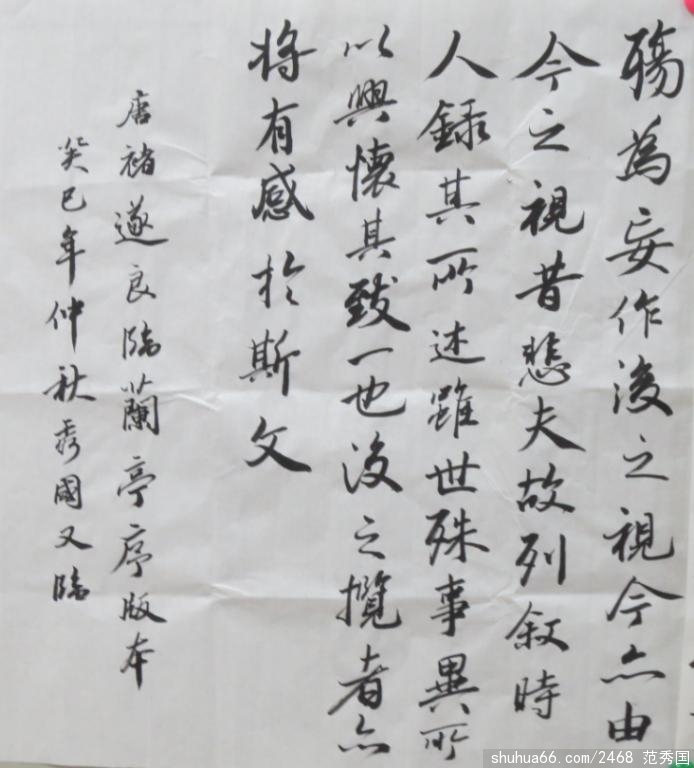 殤為妄作後之視今亦由
今之視昔悲夫故列敘時
人錄其所述雖世殊事異所
以興懷其致一也後之攬者亦
將有感於斯文
唐褚遂良臨蘭亭序版本
癸巳年仲秋秀國又臨
shuhua66.com/2468 范秀国